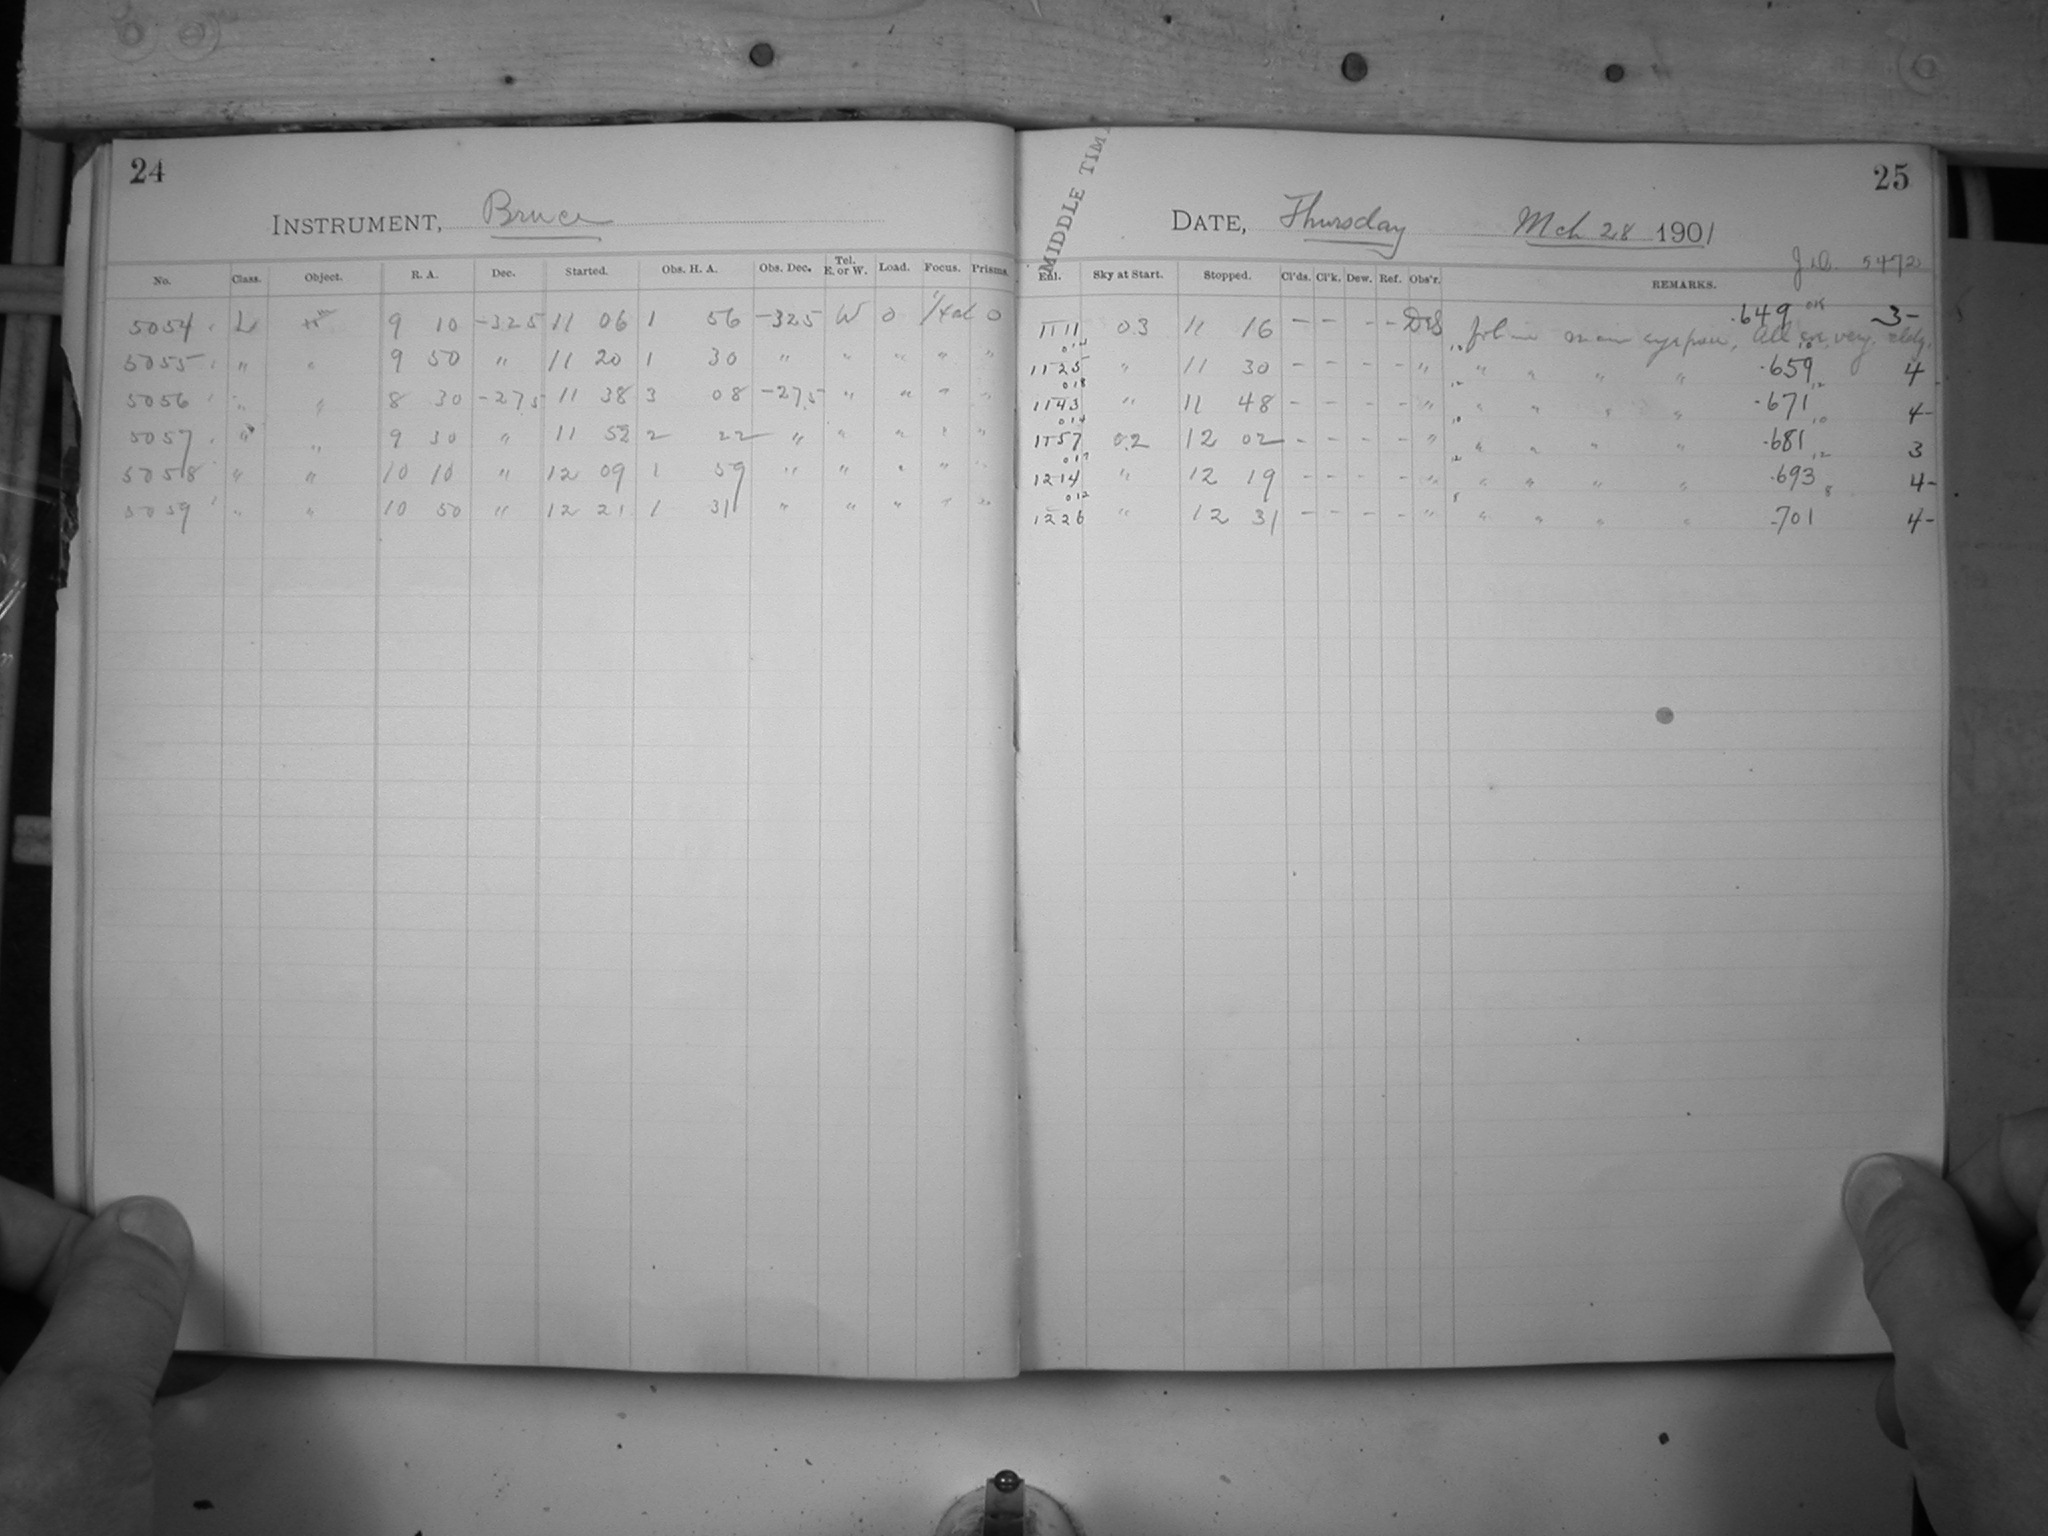 24
INSTRUMENT, Bruce
No. Class. Object. R. A. Dec. Started. Obs. H. A. Obs. Dec. Tel. E. or W. Load. Focus. Prisms.
5054 L 9 10 -32.5 11 06 1 56 -32.5 W 0 0
5055 " " 9 50 " 11 20 1 30 " " " " "
5056 " " 8 30 -27.5 11 38 3 08 -27.5 " " " "
5057 " " 9 30 " 11 52 2 22 " " " " "
5058 " " 10 10 " 12 09 1 59 " " " " "
5059 " " 10 50 " 12 21 1 31 " " " " "
MIDDLE TIM
25
DATE, Thursday Mch 28 1901
J.D. 5472
Enl. Sky at Start. Stopped. Cl'ds. Cl'k. Dew. Ref. Obs'r. REMARKS.
11 11 03 11 16 - - - - .649 OK 3-
014
11 25 " 11 30 - - - - " 10 " " " " .659 10 4
018
11 43 " 11 48 - - - - " 12 " " " " .671 12 4-
014
11 57 02 12 02 - - - - " 10 " " " " .681 10 3
017
12 14 " 12 19 - - - - " 12 " " " " .693 12 4-
012
12 26 " 12 31 - - - - " 8 " " " " .701 8 4-